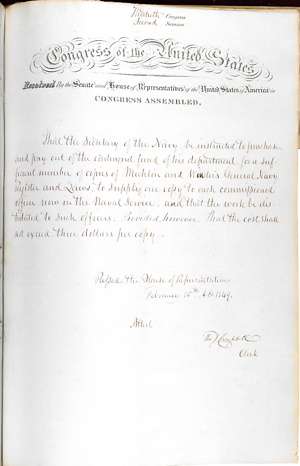 Thirtieth Congress
Second Session
Congress of the United States
Resolved By the Senate and House of Representatives of the United States of America in
CONGRESS ASSEMBLED,
That the Secretary of the Navy be instructed to purchase
and pay out of the contingent fund of his department for a suf-
ficient number of copies of Mechlin and Winder's General Navy
Register and Laws to supply one copy to each commissioned
officer now in the Naval Service, and that the work be dis-
tributed to such officers. Provided, however, That the cost shall
not exceed three dollars per copy.
Passed the House of Representatives
February 15th A.D. 1849.
Attest
Clerk